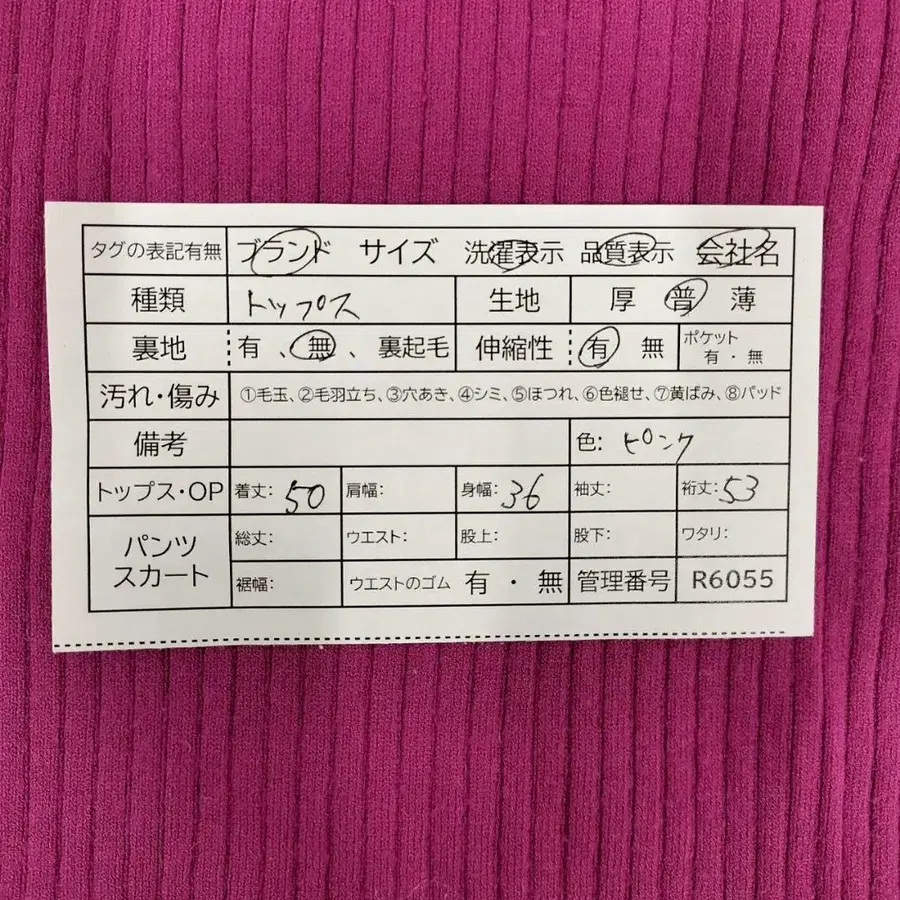 タグの表記有無 ブランド サイズ 洗濯表示 品質表示 会社名
種類 トップス 生地 厚 普 薄
裏地 有 、無、 裏起毛 伸縮性 有 無 ポケット 有・無
汚れ・傷み ①毛玉、②毛羽立ち、③穴あき、④シミ、⑤ほつれ、⑥色褪せ、⑦黄ばみ、⑧パッド
備考 色: ピンク
トップス・OP 着丈: 50 肩幅: 身幅: 36 袖丈: 裄丈: 53
パンツ スカート 総丈: ウエスト: 股上: 股下: ワタリ:
裾幅: ウエストのゴム 有 ・ 無 管理番号 R6055